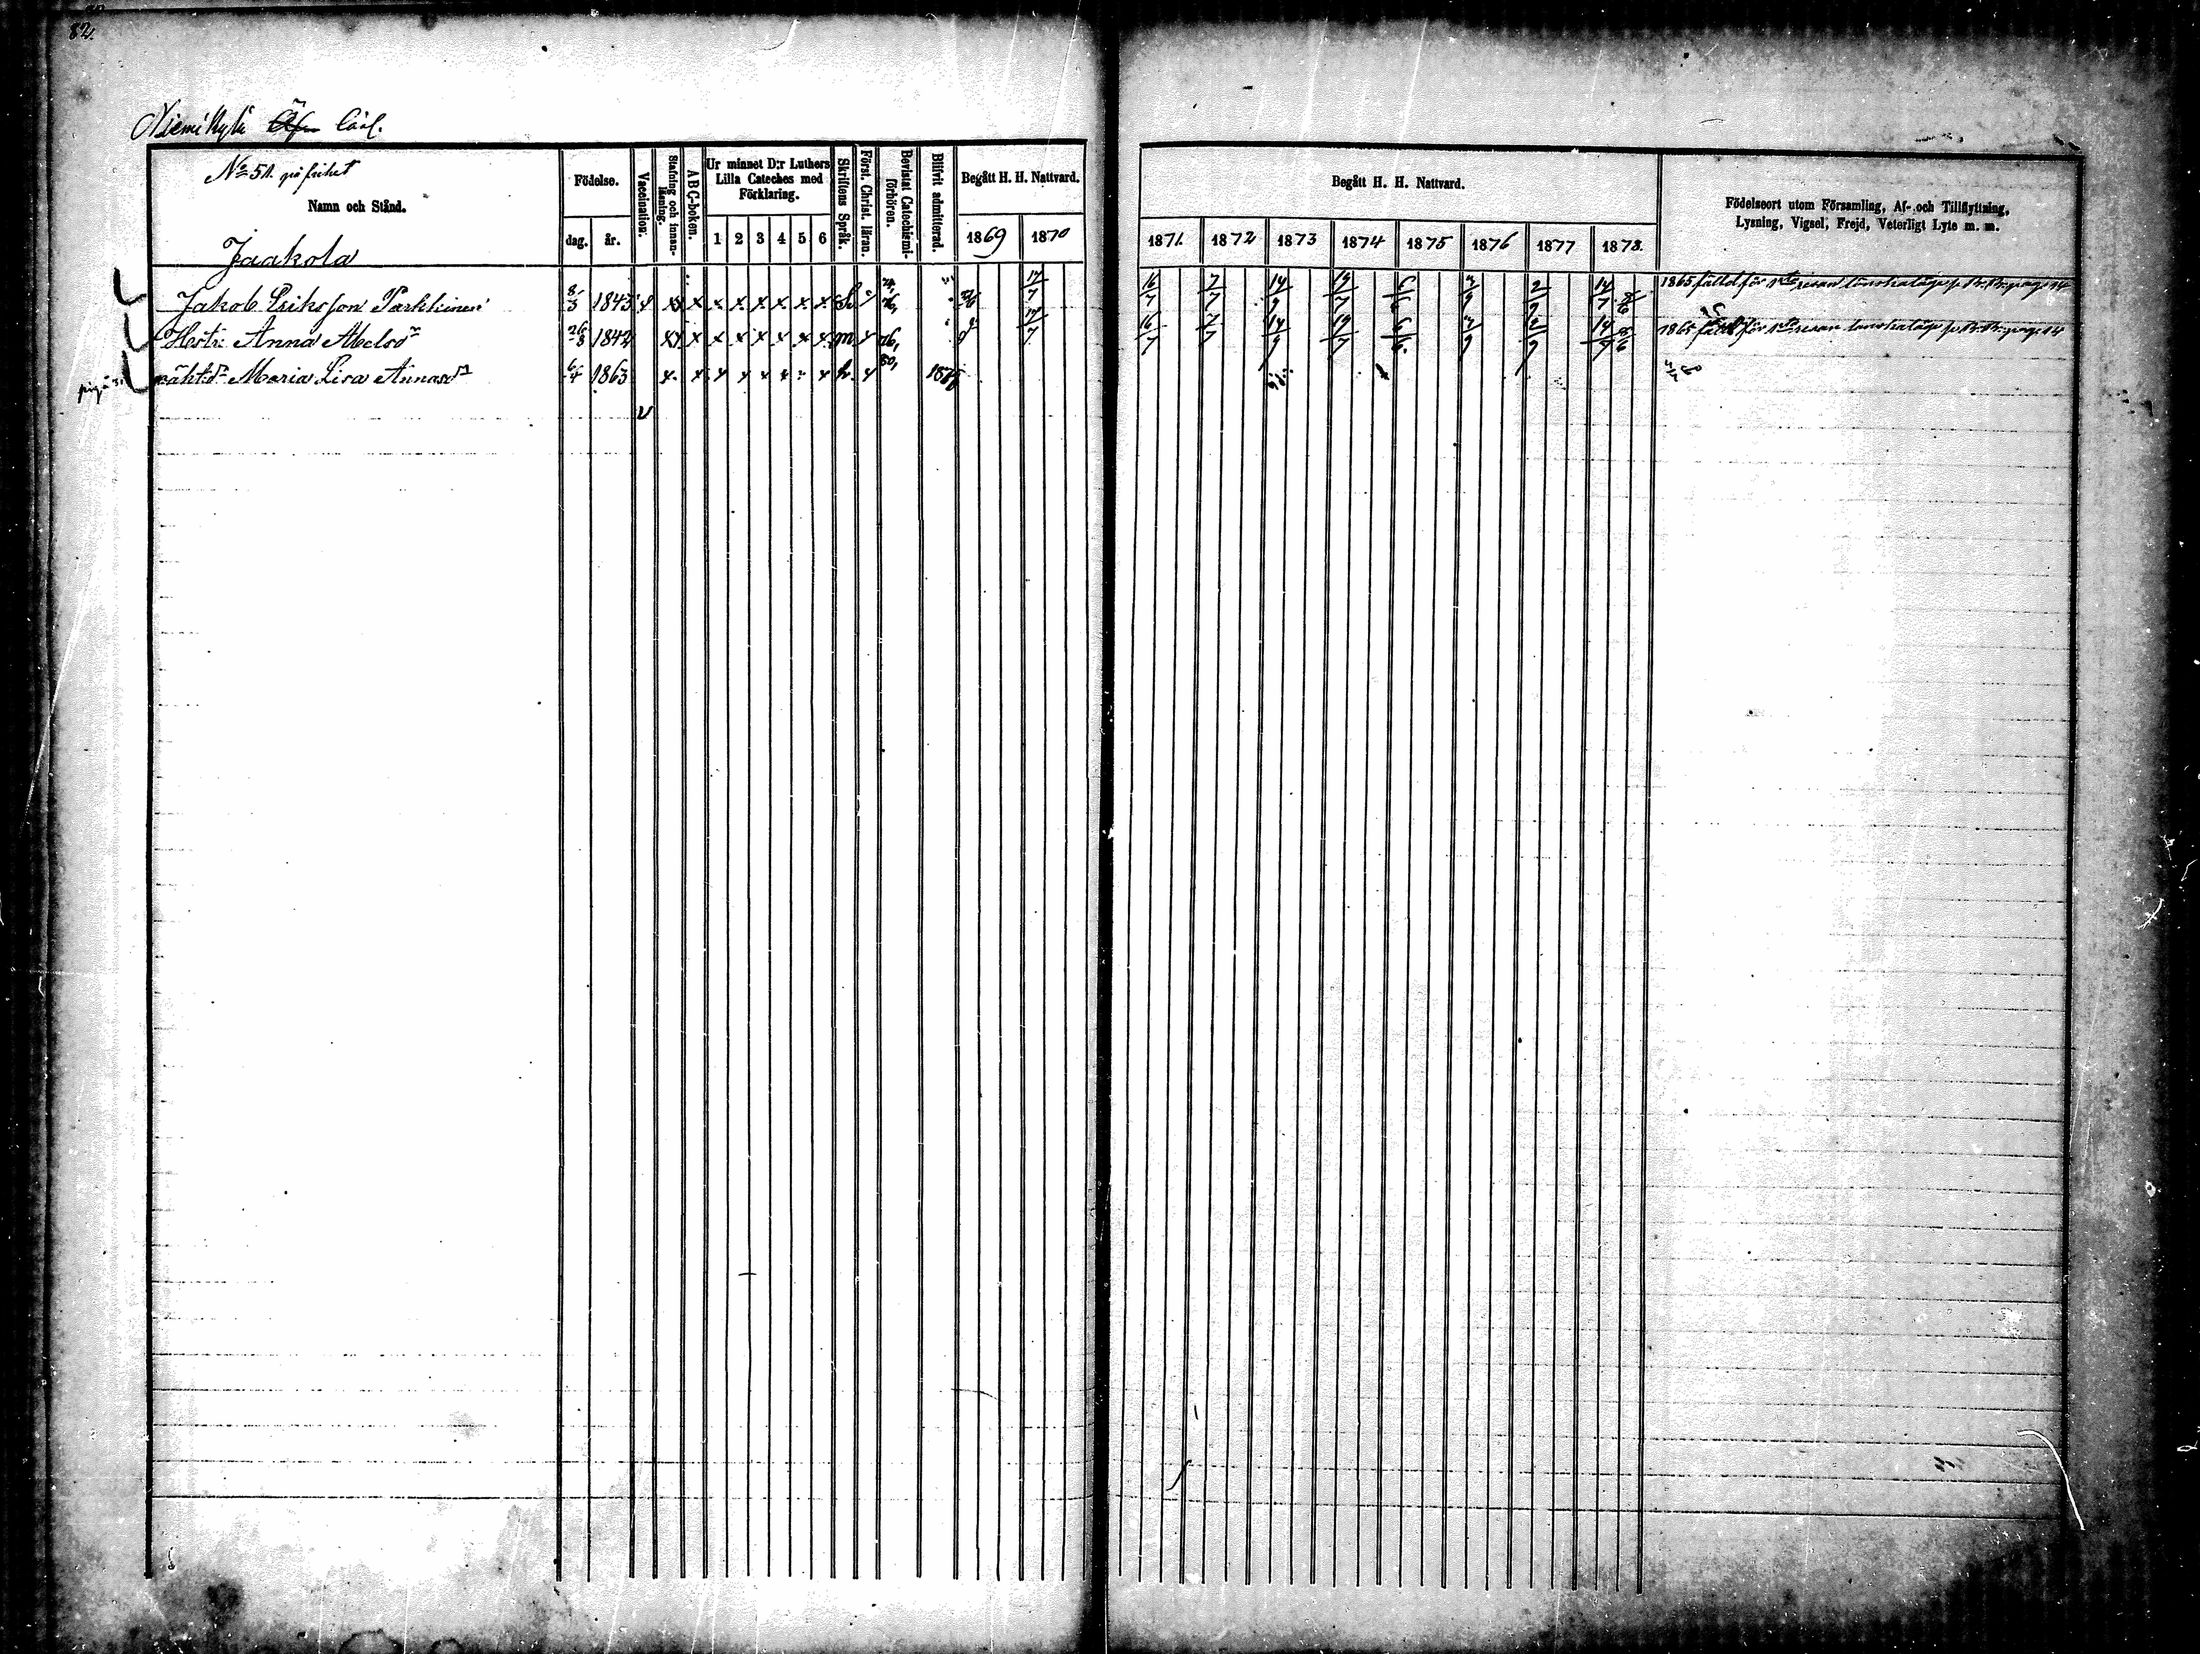 82.
Niemikylä Äfv. lärl.
No 51. på frihet
Namn och Stånd.
Jaakola
Födelse.
dag. år.
Vaccination.
Stafning och innanläsning.
ABC-boken.
Ur minnet D:r Luthers Lilla Cateches med Förklaring.
1 2 3 4 5 6
Skriftens Språk.
Först. Christ. läran.
Bevistat Catechismiförhören.
Blifvit admitterad.
Begått H. H. Nattvard.
1869 1870
Begått H. H. Nattvard.
1871. 1872 1873 1874 1875 1876 1877 1878.
Födelseort utom Församling, Af- och Tillflyttning,
Lysning, Vigsel, Frejd, Veterligt Lyte m. m.
Jakob Eriksson Parkkinen 8/3 1843 17/7 16/7 7/7 14/9 19/7 2/9 14/7 1865 fälld för 1sta resan lönskaläge p. Br. Br. pag. 14
Hustr: Anna Abelsdr 26/8 1842 17/7 16/7 7/7 14/9 19/7 6/6 2/9 1865 fälld för 1sta resan lönskaläge p. Br. Br. pag. 14
oäkt.dr Maria Lisa Annasdr 6/4 1863